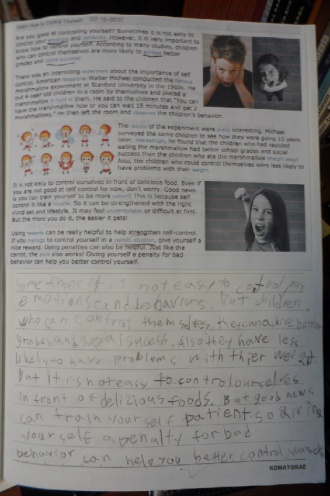 Learn How to Control Yourself!
Are you good at controlling yourself? Sometimes it is not easy to
control your emotions and behaviors. However, it is very important to
know how to control yourself. According to many studies, children
who can control themselves are more likely to achieve better
grades and social success.
There was an interesting experiment about the importance of self
control. American researcher Walter Michael conducted the famous
marshmallow experiment at Stanford University in the 1960s. He
put 4-year-old children in a room by themselves and placed a
marshmallow in front of them. He said to the children that "You can
have the marshmallow now or you can wait 15 minutes and get 2
marshmallows." He then left the room and observed the children's behavior.
The results of the experiment were quite interesting. Michael
surveyed the same children to see how they were doing 15 years
later. Interestingly, he found that the children who had resisted
eating the marshmallow had better school grades and social
success than the children who ate the marshmallow straight away!
Also, the children who could control themselves were less likely to
have problems with their weight.
It is not easy to control ourselves in front of delicious food. Even if
you are not good at self control for now, don't worry. Good news
is you can train yourself to be more patient! This is because self
control is like a muscle. So it can be strengthened with the right
mind set and lifestyle. It may feel uncomfortable or difficult at first.
But the more you do it, the easier it gets!
Using rewards can be really helpful to help strengthen self-control.
If you manage to control yourself in a certain situation, give yourself a
nice reward. Using penalties can also be helpful. Just like the
carrot, the stick also works! Giving yourself a penalty for bad
behavior can help you better control yourself.
Sometimes it is not easy to control our
emotions and behaviours. But children
who can control themselves, they can achieve better
grades and social success. Also they have less
likely to have problems with thier weight.
But it is not easy to control ourselves
in front of delicious foods. But good news
can train yourself patient. so giving
yourself a penalty for bad
behavior can help you better control
KOMATGRAE